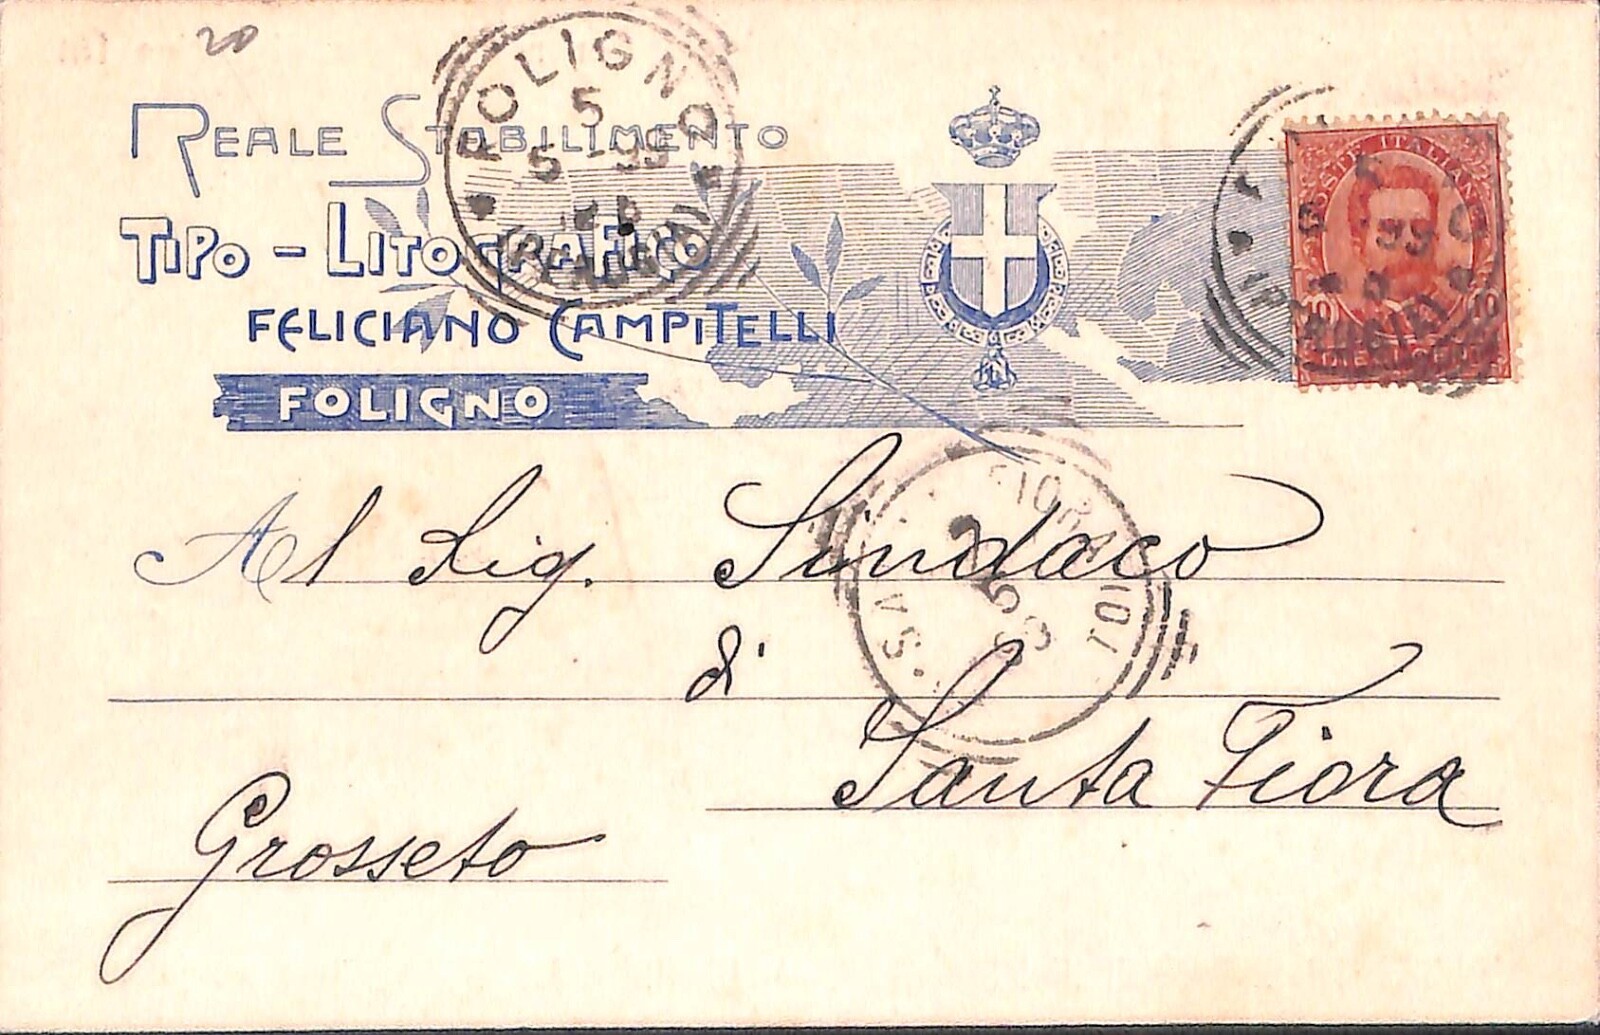 20
REALE STABILIMENTO
TIPO - LITOGRAFICO
FELICIANO CAMPITELLI
FOLIGNO
FOLIGNO
5
5 - 99
(PERUGIA)
POSTE ITALIANE
10 10
(PERUGIA)
Al Sig. Sindaco
di
Santa Fiora
Grosseto